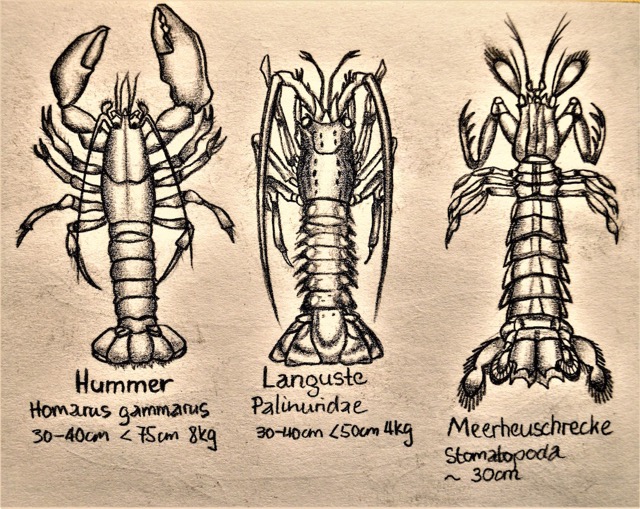 Hummer
Homarus gammarus
30-40cm < 75cm 8kg
Languste
Palinuridae
30-40cm <50cm 4kg
Meerheuschrecke
Stomatopoda
~ 30cm